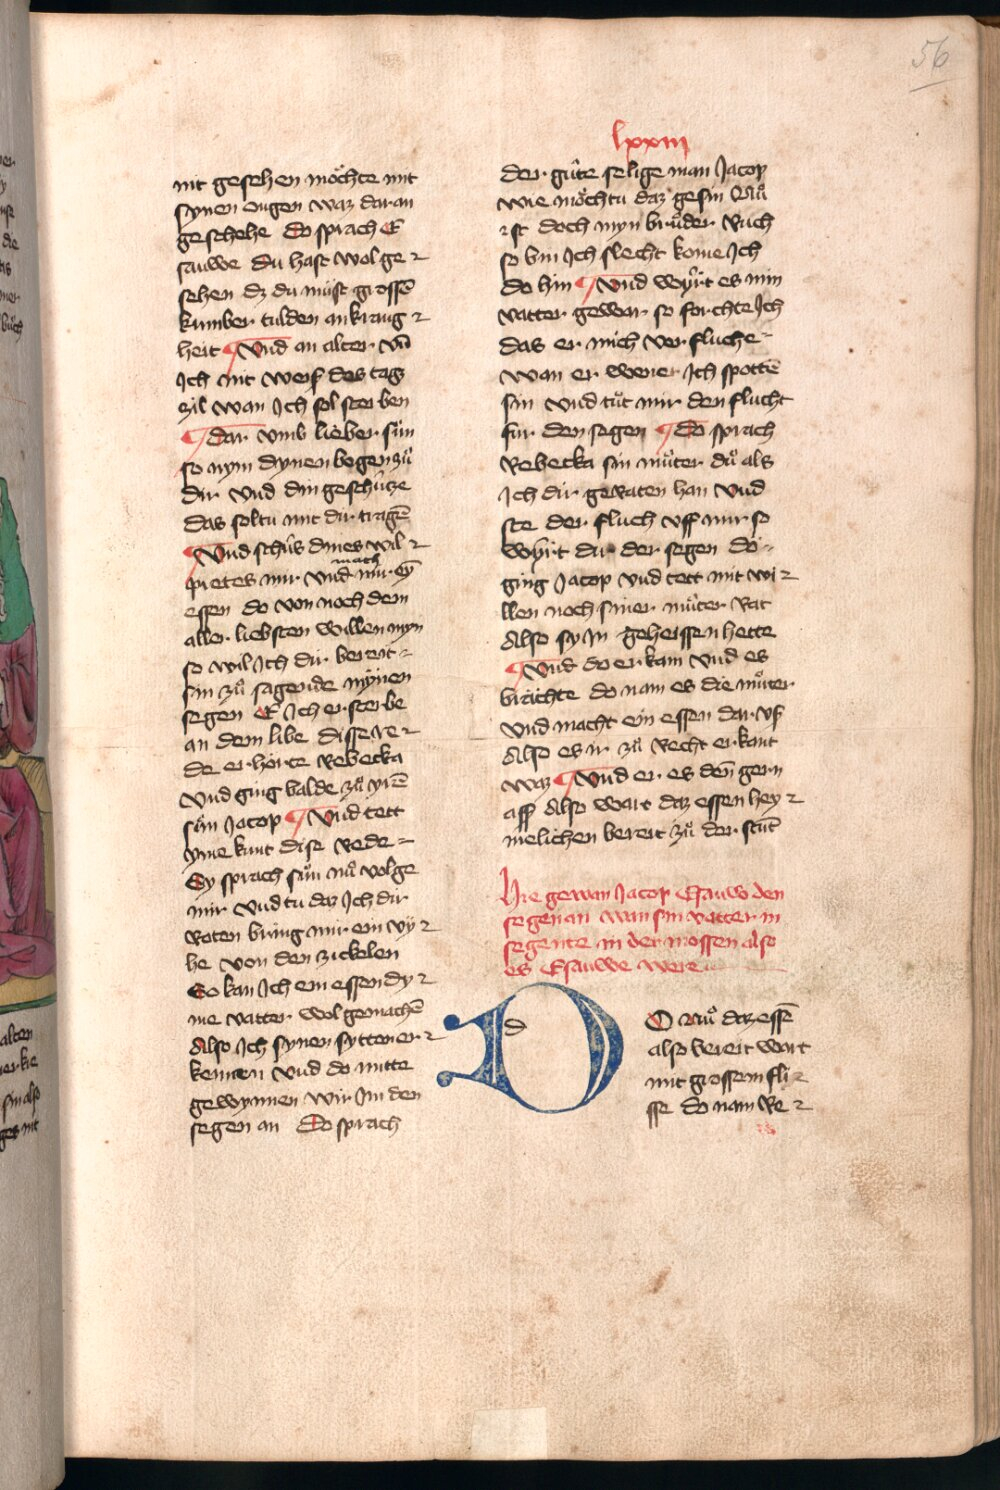 56
lxxiii
nit gesehen moͤchte mit
synen ougen waz dar an
geschehe Do sprach E
sauwe du hast wol ge
sehen dz du must grossē
kumber tulden an krang
heit ¶ Vnd an alter vñ
Jch nit weiß des tags
zil wan Jch sol sterben
¶ dar vmb lieber sün
so nym dynen bogen zuͦ
dir vnd din geschütze
das soltu mit dir tragē
¶ Vnd schüs dines wil
pretes mir vnd mach mir eȳ
essen do von noch dem
aller liebsten willen myn
so wil Jch dir bereit
sin zuͦ sagende mynen
segen E Jch ersterbe
an dem libe disse re
de erhorte Rebecka
vnd ging balde zuͦ yrē
sün Jacop ¶ Vnd tett
yme kunt dise Rede
Sy sprach sün nuͦ volge
mir vnd tu daz Jch dir
Roten bring mir ein vy
he von den zickelen
So kan Jch ein essen dy
me vatter wol gemachē
Also Jch synen sytten er
kennen vnd do mitte
gewynnen wir Jm den
segen an Do sprach
der guͤte selige man Jacop
wie moͤchtu daz gesin Nuͦ
ist doch myn bruͦder Ruch
so bin Jch slecht kome Jch
do hin ¶ Vnd wuͤrt es min
vatter gewar so forchte Jch
das er mich verfluche
wan er wener Jch spottē
sin vnd tuͦt mir den flucht
für den segen ¶ do sprach
Rebecka sin muͦter duͦ als
Jch dir geraten han vnd
ste der fluch vff mir so
wuͤrt dir der segen do
ging Jacop vnd tett mit wi
llen noch siner muͦter Rat
Also sy Jn geheissen hette
¶ Vnd do er kam vnd es
brachte do nam es die muͦter
vnd macht ein essen dar vß
Also es ir zuͦ Recht erkant
waz ¶ Vnd er es den gern
aß Also wart daz essen hey
melichen bereit zuͦ der stüt
Hie gewan Jacop Esauw den
segen an wan sin vatter in
segente in der mossen also
es Esauwe were
DO nuͦ daz essē
also bereit wart
mit grossem fli
sse do nam Re